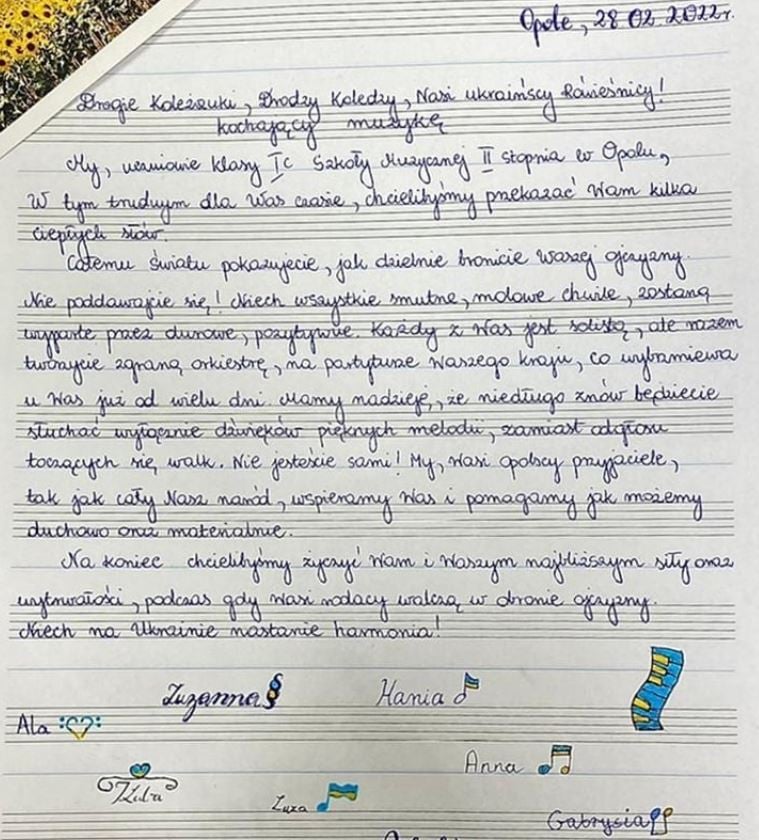 Opole, 28.02.2022r.
Drogie Koleżanki, Drodzy Koledzy, Nasi ukraińscy Rówieśnicy!
kochający muzykę
My, uczniowie klasy Ic Szkoły Muzycznej II stopnia w Opolu,
W tym trudnym dla Was czasie, chcielibyśmy przekazać Wam kilka
ciepłych słów.
Całemu światu pokazujecie, jak dzielnie bronicie Waszej ojczyzny.
Nie poddawajcie się! Niech wszystkie smutne, molowe chwile, zostaną
wyparte przez durowe, pozytywne. Każdy z Was jest solistą, ale razem
tworzycie zgraną orkiestrę, na partyturze Waszego kraju, co wybrzmiewa
u Was już od wielu dni. Mamy nadzieję, że niedługo znów będziecie
słuchać wyłącznie dźwięków pięknych melodii, zamiast odgłosu
toczących się walk. Nie jesteście sami! My, Wasi opolscy przyjaciele,
tak jak cały Nasz naród, wspieramy Was i pomagamy jak możemy
duchowo oraz materialnie.
Na koniec chcielibyśmy życzyć Wam i Waszym najbliższym siły oraz
wytrwałości, podczas gdy Wasi rodacy walczą w obronie ojczyzny.
Niech na Ukrainie nastanie harmonia!
Zuzanna Hania
Ala
Anna
Zuza
Gabrysia